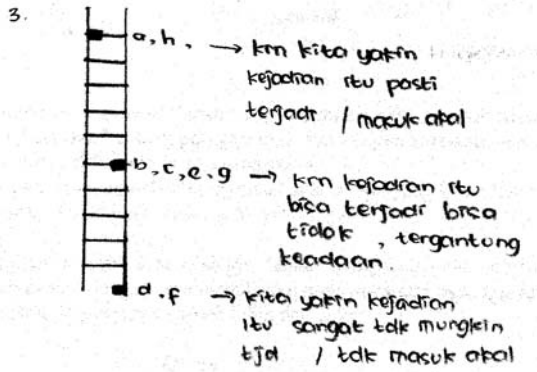 3.
a, h, → krn kita yakin
kejadian itu pasti
terjadi / masuk akal
b, c, e, g → krn kejadian itu
bisa terjadi bisa
tidak , tergantung
keadaan
d, f → kita yakin kejadian
itu sangat tdk mungkin
tjd / tdk masuk akal